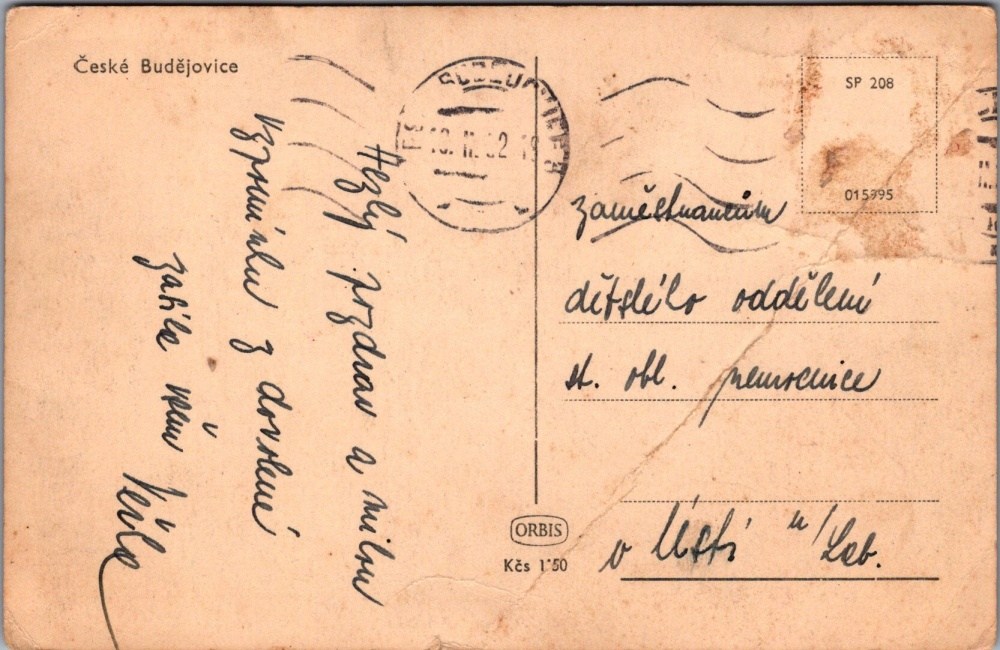 České Budějovice
Hezký pozdrav a milou
vzpomínku z dovolené
zasílá všem
SP 208
015995
zaměstnancům
dětského oddělení
st. obl. nemocnice
v Ústí n/Lab.
ORBIS
Kčs 1·50